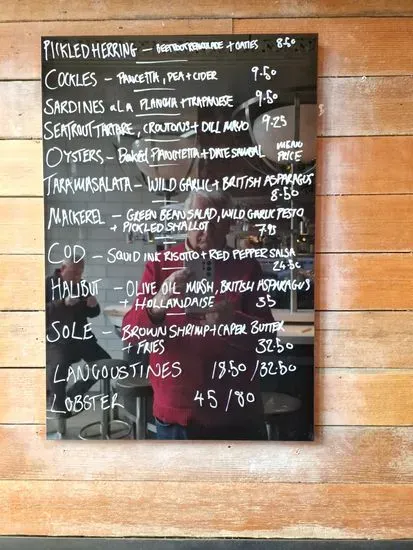 PICKLED HERRING – BEETROOT REMOULADE + OATIES 8.50
COCKLES – PANCETTA, PEA + CIDER 9.50
SARDINES a LA PLANCHA + TRAPANESE 9.50
SEATROUT TARTARE, CROUTONS + DILL MAYO 9.25
OYSTERS – BAKED PANCHETTA + DATE SAMBAL MENU
PRICE
TARAMASALATA – WILD GARLIC + BRITISH ASPARAGUS
8.50
MACKEREL – GREEN BEAN SALAD, WILD GARLIC PESTO
+ PICKLED SHALLOT 7.95
COD – SQUID INK RISOTTO + RED PEPPER SALSA
24.50
HALIBUT – OLIVE OIL MASH, BRITISH ASPARAGUS
+ HOLLANDAISE 35
SOLE – BROWN SHRIMP + CAPER BUTTER
+ FRIES 32.50
LANGOUSTINES 18.50 / 32.50
LOBSTER 45 / 80